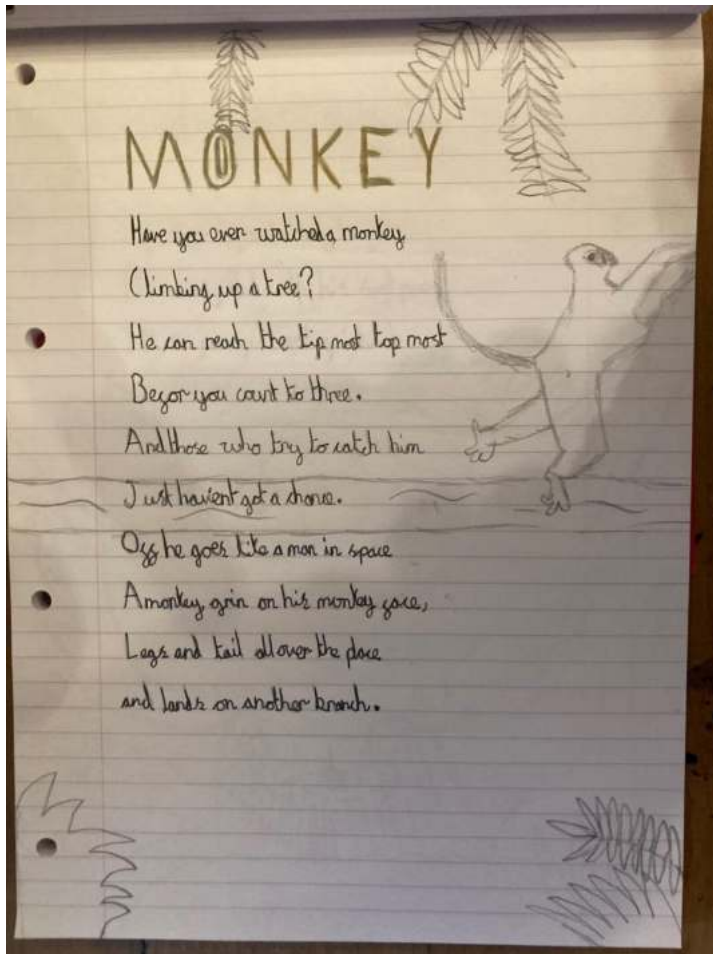 MONKEY
Have you ever watched a monkey
Climbing up a tree?
He can reach the tip most top most
Befor you count to three.
And those who try to catch him
Just havient got a chance.
Off he goes like a man in space
A monkey grin on his monkey face,
Legs and tail all over the place
and lands on another branch.